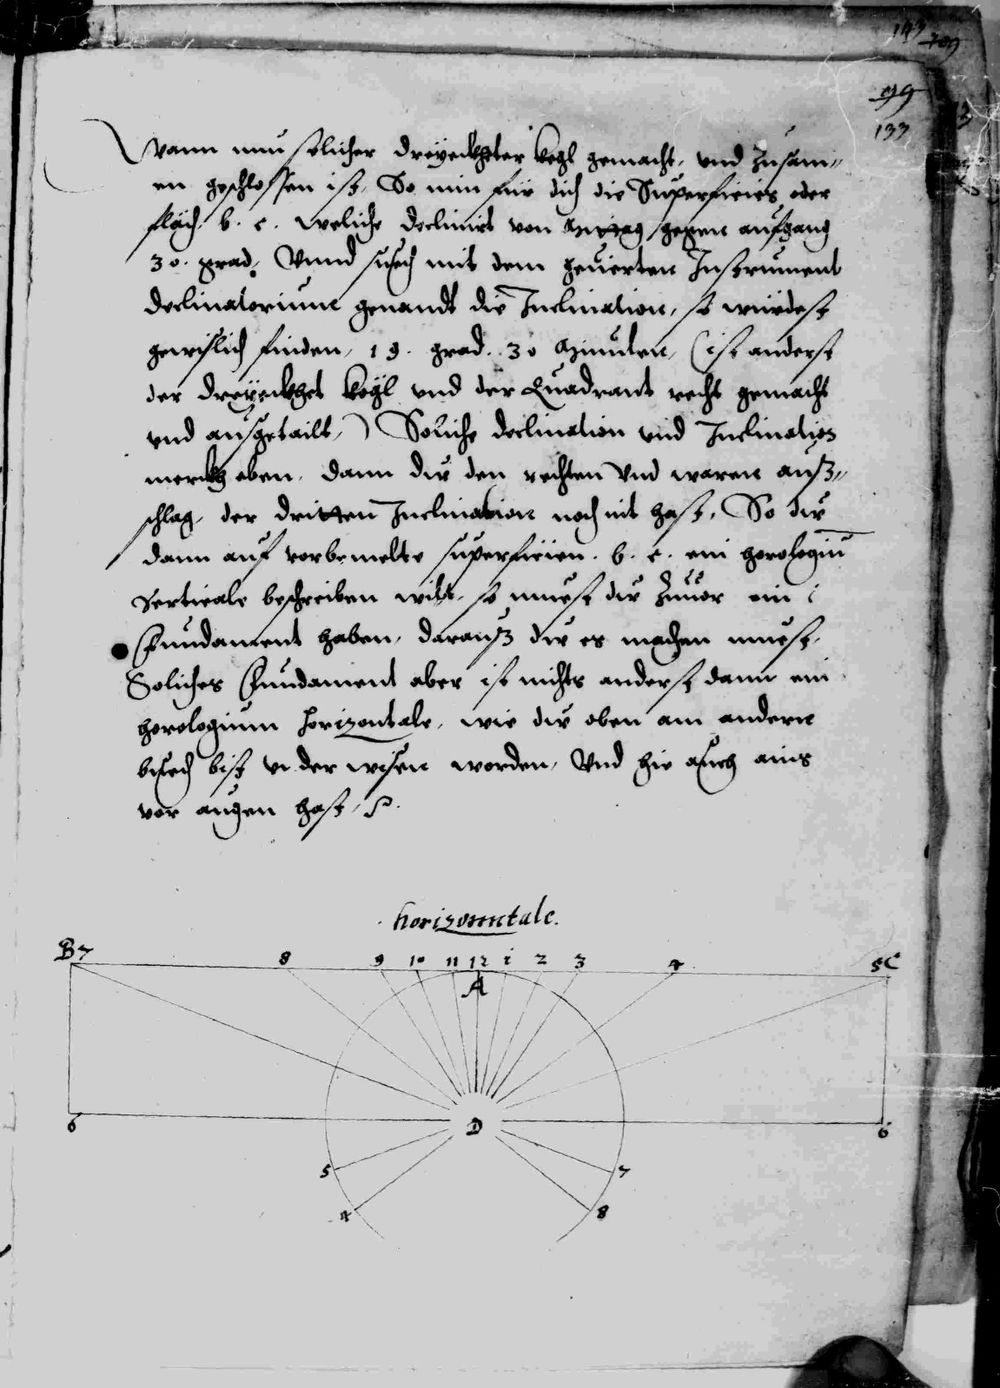 143 709
99
133
Wann nun solicher dreÿeckheter kegl gemacht, und zusam¬
en geschlossen ist, So nim für dich die Superficies oder
fläch. b. c. weliche declinirt von Mittag gegen aufgang
30. grad, Vnnd such mit dem gevierten Instrument
declinatorium genandt die Inclination, so würdest
gewislich finden, 19. grad. 30 Minuten, (ist anderst
der dreÿeckhet kegl vnd der Quadrant recht gemacht
vnd ausgetailt,) Soliche declination vnd Inclination
merckh eben, dann du den rechten vnd waren auß¬
schlag, der dritten Inclination noch nit hast, So du
dann auf vorbemelte superficien. b. c. ein horologiū
verticale beschreiben wilt, so muest du zuuor ein
Fundament haben, darauß du es machen muest,
Soliches Fundament aber ist nichts anderst dann ein
horologium horizontale, wie du oben am andern
buech bist vnderwisen worden, Vnd hie auch ains
vor augen hast,
horizonntale.
B 7 8 9 10 11 12 1 2 3 4 5 C
A
6 D 6
5 7
4 8